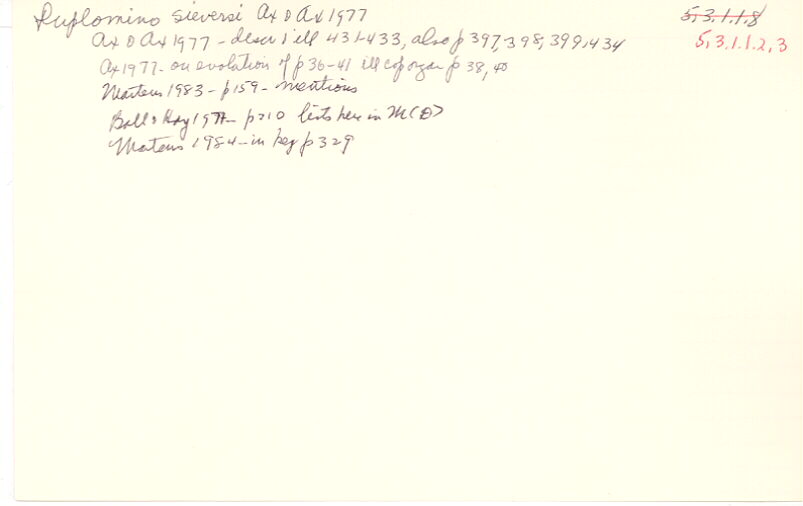 Duplomino sieversi Ax & Ax 1977
5.3.1.1.8
5.3.1.1.2.3
Ax & Ax 1977 - descr ill 431-433, also p 397, 398, 399, 434
Ax 1977 - on evolution of p 36-41 ill cop organ p 38, 40
Martens 1983 - p 159 - mentions
Ball & Hay 1977 - p 210 lists here in M(
Martens 1984 - in key p 329